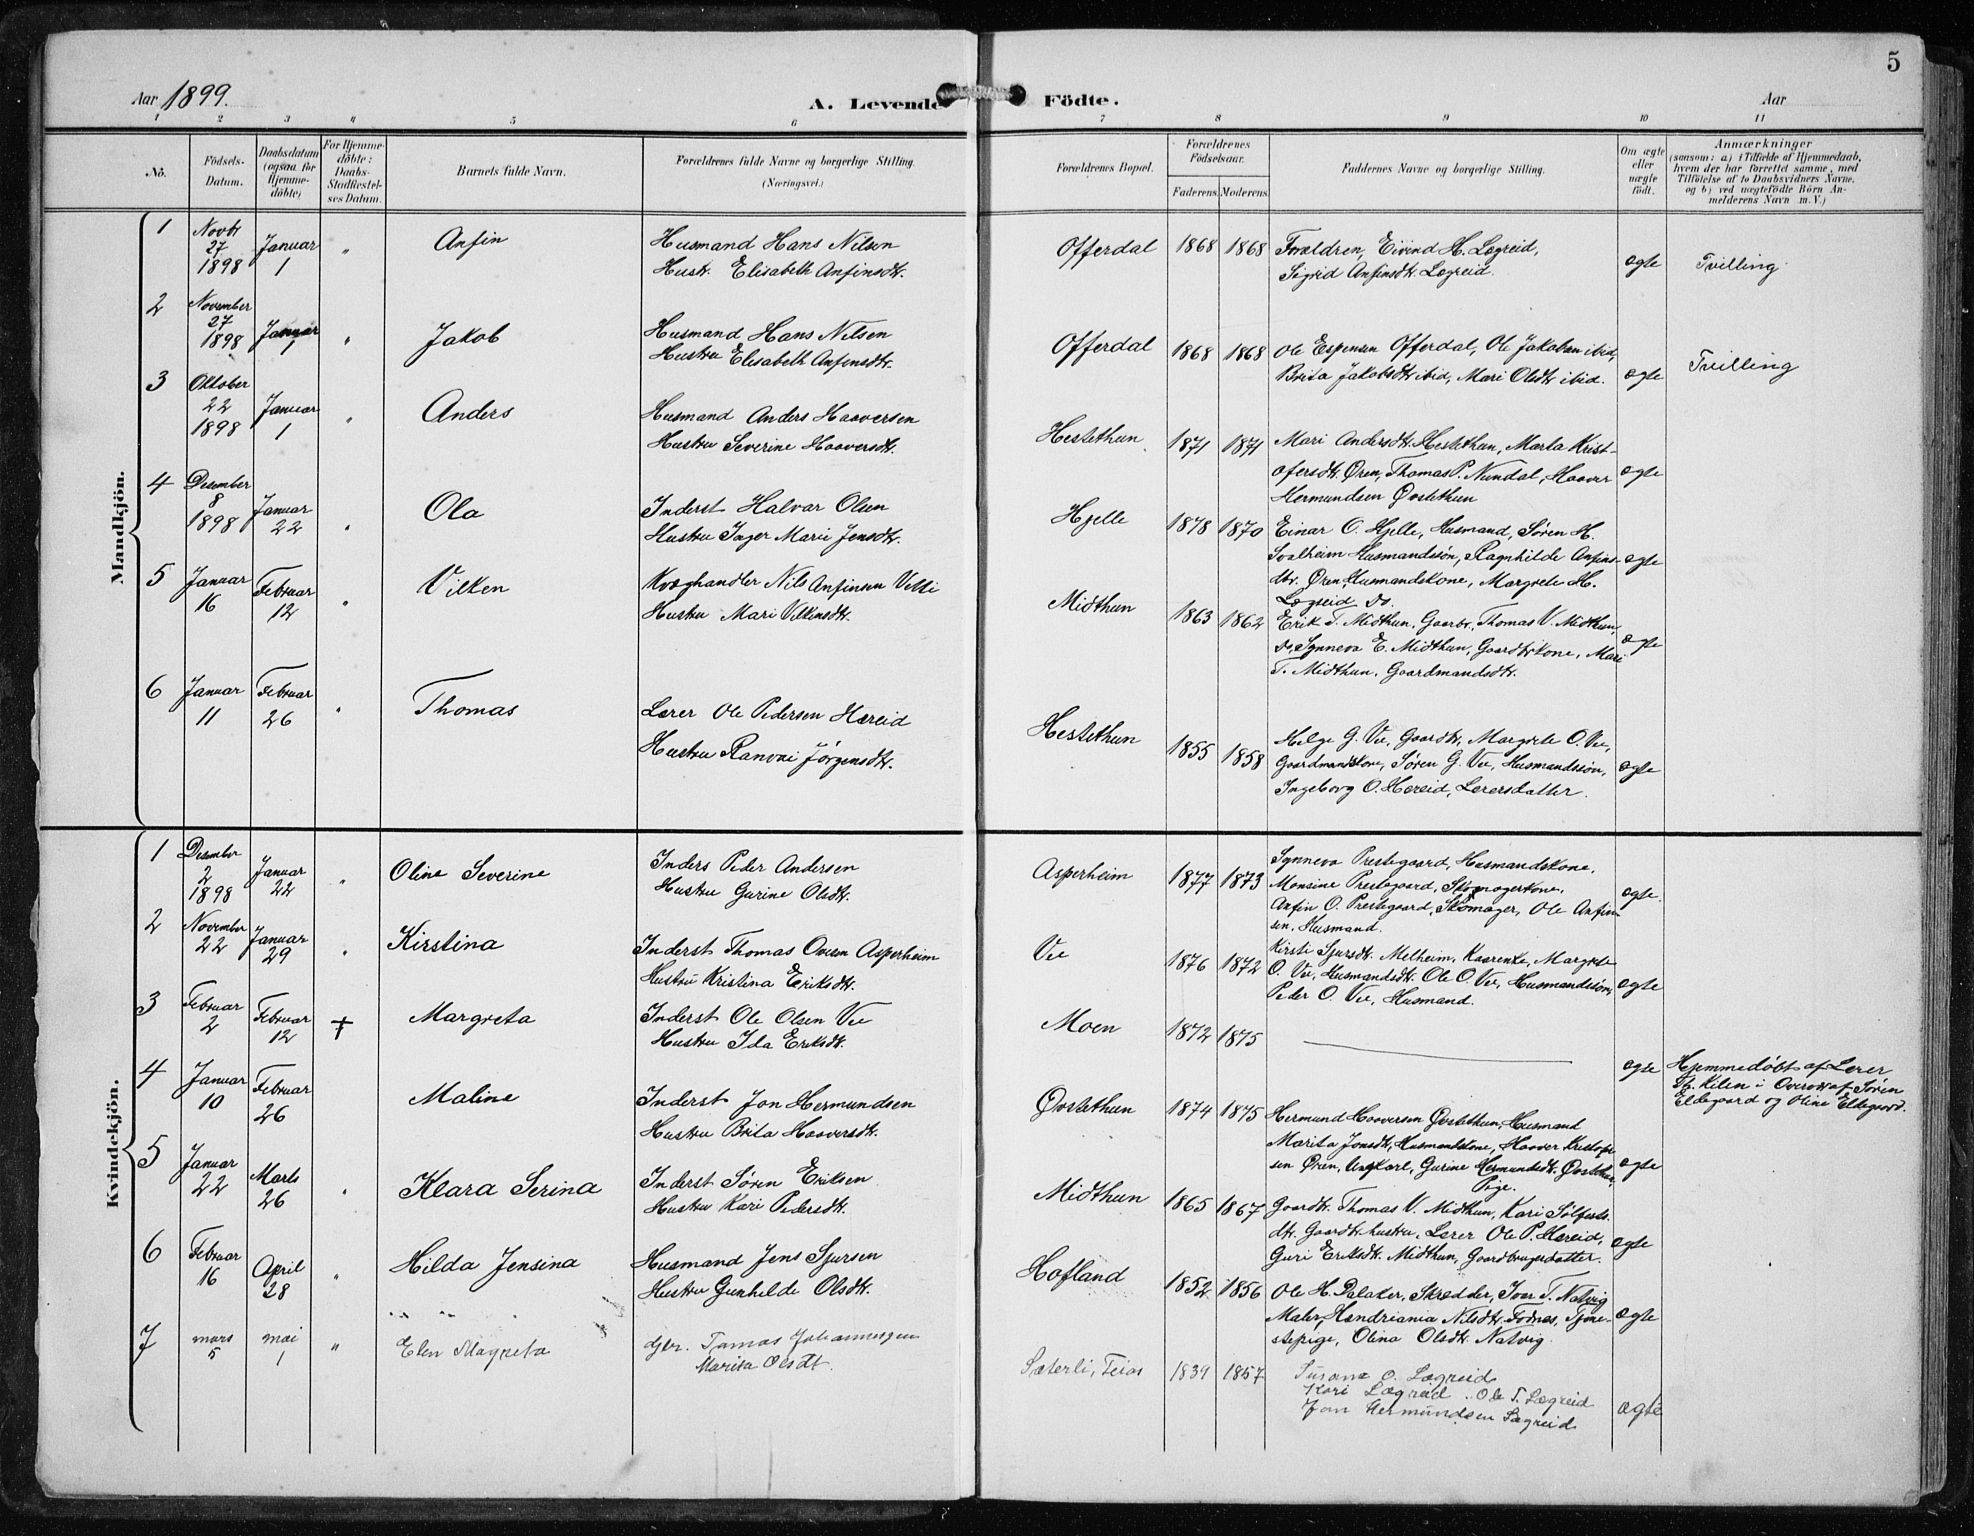 5
Aar 1899.
A. Levende Födte.
Aar
1 2 3 4 5 6 7 8 9 10 11
No.
Födsels-Datum.
Daabsdatum (ogsaa for Hjemmedöbte)
For Hjemmedöbte: Daabs-Stadfæstelses Datum.
Barnets fulde Navn.
Forældrenes fulde Navne og borgerlige Stilling.
(Næringsvei.)
Forældrenes Bopæl.
Forældrenes Födselsaar.
Faderens. Moderens.
Faddernes Navne og borgerlige Stilling.
Om ægte eller uægte födt.
Anmærkninger
(saasom: a) i Tilfælde af Hjemmedaab,
hvem der har forrettet samme, med
Tilföielse af to Daabsvidners Navne,
og b) ved uægtefödte Börn An-
melderens Navn m. V.)
Mandkjön.
1 Novbr 27 1898 Januar 1 " Anfin
Husmand Hans Nilsen
Hustr. Elisabeth Anfinsdtr.
Offerdal 1868 1868
Forældren, Eivind H. Lægreid,
Sigrid Anfinsdt. Lægreid.
ægte Tvilling
2 November 27 1898 Januar 1 " Jakob
Husmand Hans Nilsen
Hustru Elisabeth Anfinsdtr.
Offerdal 1868 1868
Ole Espensen Offerdal, Ole Jakobsen ibid,
Brita Jakobsdtr ibid, Mari Olsdtr ibid.
ægte Tvilling
3 Oktober 22 1898 Januar 1 " Anders
Husmand Anders Haaversen
Hustru Severine Haaversdtr.
Hestethun 1871 1871
Mari Andersdtr. Hestethun, Marta Krist-
ofersdtr. Øren, Thomas P. Nundal, Haaver
Hermundsen Øvstethun
ægte
4 Desember 8 1898 Januar 22 " Ola
Inderst Halvar Olsen
Hustru Inger Marie Jensdtr.
Hjelle 1878 1870
Einar O. Hjelle, Husmand, Søren H.
Svalheim Husmandssøn, Ragnhilde Anfins-
dtr. Øren, Husmandskone, Margrete H.
Lægreid do.
ægte
5 Januar 16 Februar 12 " Vilken
Kvæghandler Nils Anfinsen Vetti
Hustru Mari Vilkensdtr.
Midthun 1863 1862
Erik T. Midthun, Gaardbr, Thomas V. Midthun,
do, Synneva E. Midthun, Gaardbrkone, Mari
T. Midthun, Gaardmandsdtr.
ægte
6 Januar 11 Februar 26 " Thomas
Lærer Ole Pedersen Hæreid
Hustru Ranvei Jørgensdtr.
Hestethun 1855 1858
Helge G. Ve, Gaardbr, Margrete O. Ve,
Gaardmandskone, Søren G. Ve, Husmandssøn,
Ingeborg O. Hæreid, Lærersdatter.
ægte
Kvindekjön.
1 Desember 2 1898 Januar 22 " Oline Severine
Inders Peder Andersen
Hustru Gurine Olsdtr.
Asperheim 1877 1873
Synneva Prestegaard, Husmandskone,
Monsine Prestegaard, Skomagerkone,
Anfin O. Prestegaard, Skomager, Ole Anfin-
sen, Husmand.
ægte
2 November 22 Januar 29 " Kirstina
Inderst Thomas Ovesen Asperheim
Hustru Kristina Eriksdtr.
Ve 1876 1872
Kirsti Sjursdt. Melheim, Kaarenke, Margrete
O. Ve, Husmandsdtr. Ole O. Ve, Husmandssøn,
Peder O. Ve, Husmand.
ægte
3 Februar 2 Februar 12 † Margreta
Inderst Ole Olsen Ve
Hustru Ida Eriksdtr.
Moen 1872 1875
ægte
Hjemmedøbt af Lærer
St. Kilen i Overvær af Søren
Eldegaard og Oline Eldegaard.
4 Januar 10 Februar 26 Maline
Inderst Jon Hermundsen
Hustru Brita Haaversdtr.
Øvstethun 1874 1875
Hermund Haaversen Øvstethun, Husmand
Marita Jonsdtr, Husmandskone, Haaver Kristofer-
sen Øren, Ungkarl, Gurine Hermundsdtr. Øvstethun,
Pige.
ægte
5 Januar 22 Marts 26 " Klara Serina
Inderst Søren Eriksen
Hustru Kari Pedersdtr.
Midthun 1865 1867
Gaardbr. Thomas V. Midthun, Kari Sølfests-
dtr. Gaardbr. hustru, Lærer Ole P. Hæreid,
Guri Eriksdtr. Midthun, Gaardbrugerdatter.
ægte
6 Februar 16 April 28 " Hilda Jensina
Husmand Jens Sjursen
Hustru Gunhilde Olsdtr.
Hofland 1852 1856
Ole H. Dalaker, Skrædder, Iver T. Natvig
Maler, Hendriania Nilsdtr. Fodnes, Tjene-
stepige, Olina Olsdtr. Natvig.
ægte
7 mars 5 mai 1 " Elen Magreta
gbr. Tomas Johannesgen
Marita Olsdt.
Sæterli, Feios 1839 1857
Susane O. Lægreid
Kari Lægreid. Ole T. Lægreid
Jon Hermundsen Lægreid
ægte